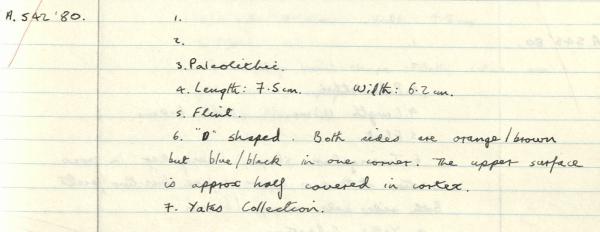 A. 542 '80.
1.
2.
3. Paleolithic.
4. Length: 7.5cm. Width: 6.2 cm.
5. Flint.
6. "D" shaped. Both sides are orange/brown
but blue/black in one corner. The upper surface
is approx half covered in cortex.
7. Yates Collection.